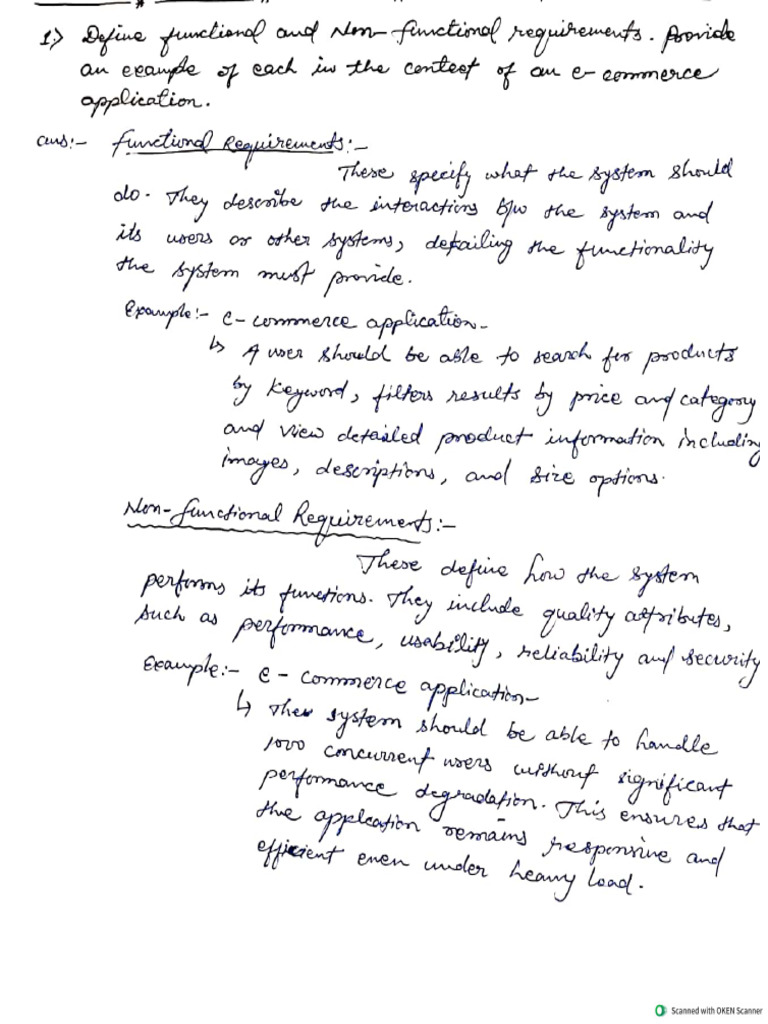 1.) Define functional and Non-functional requirements. Provide
an example of each in the context of an e-commerce
application.
ans:- Functional Requirements:-
These specify what the system should
do. They describe the interactions b/w the system and
its users or other systems, detailing the functionality
the system must provide.
Example:- e-commerce application-
↳ A user should be able to search for products
by keyword, filters results by price and category
and view detailed product information including
images, descriptions, and size options.
Non-functional Requirements:-
These define how the system
performs its functions. They include quality attributes,
such as performance, usability, reliability and security
Example:- e-commerce application-
↳ The system should be able to handle
1000 concurrent users without significant
performance degradation. This ensures that
the application remains responsive and
efficient even under heavy load.
Scanned with OKEN Scanner